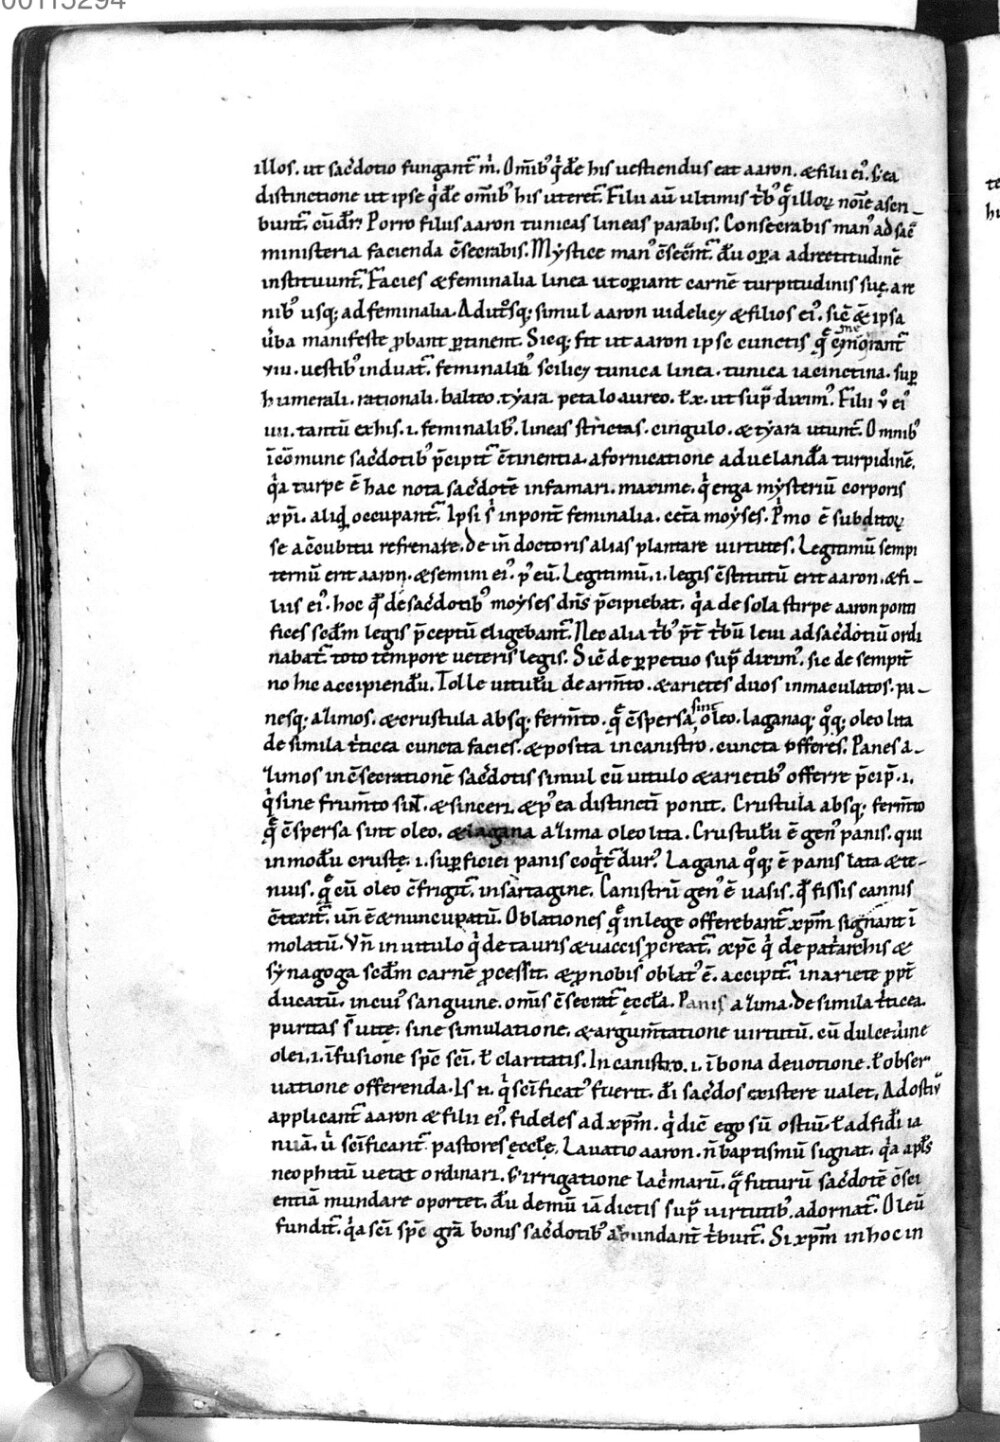 00115294
illos. ut sac̄dotio fungant᷑ m̄. Om̄ibꝰ q̇dē his uestiendus eat aaron. & filii eiꝰ. S; ea
distinctione ut ipse q̇dē om̄ibꝰ his uteret᷑. Filii aū ultimis t̄bꝰ q̄ illoꝝ noīe ascri-
bunt᷑. eūdr̄? Porro filiis aaron tunicas lineas parabis. Consecrabis manꝰ ad sac̄
ministeria facienda c̄secrabis. Mystice manꝰ c̄sec̄nt᷑. dū oꝑa ad rectitudinē
instituunt᷑. Facies & feminalia linea ut oꝑiant carnē turpitudinis suę. a re
nibꝰ usq; ad feminalia. Ad utꝰsq; simul aaron uidelicꝫ & filios eiꝰ. sic̄ & ipsa
ūba manifeste ꝓbant ꝑtinent. Sicq; fit ut aaron ipse cunctis q̄ c̄memorant᷑
viii. uestibꝰ induat᷑. feminalibꝰ scilicꝫ tunica linea. tunica iacinctina. suꝑ
humerali. rationali. balteo. tyara. petalo aureo. ł x. ut sup̄ diximꝰ. Filii v̊ eiꝰ
iiii. tantū ex his. i. feminalibꝰ. lineas strictas. cingulo. & tyara utunt᷑. Omnibꝰ
ī cōmune sac̄dotibꝰ p̄cipit᷑ c̄tinentia. a fornicatione ad uelandā turpidinē.
q̇a turpe ē hac nota sac̄dotē infamari. maxime. q̇ erga mysteriū corporis
xp̄i. aliq̇d occupant᷑. Ipsi s̄ inpont̄ feminalia. cet̄a moyses. Ṗmo ē subditoꝝ
se ac̄cubitu refrenare. dein̄ doctoris alias plantare uirtutes. Legitimū sempi
ternū erit aaron. & semini eiꝰ. pꝰ eū. Legitimū. i. legis c̄stitutū erit aaron. & fi-
liis eiꝰ. hoc q̄ de sac̄dotibꝰ moyses dn̄s p̄cipiebat. q̇a de sola stirpe aaron ponti
fices scd̄m legis p̄ceptū eligebant᷑. Nec alia t̄bꝰ p̄t̄ t̄bū leui ad sac̄dotiū ordi
nabat᷑. toto tempore ueteris legis. Sic̄ de ꝑpetuo sup̄ diximꝰ. sic de sempit̄
no hic accipiendū. Tolle uitulū de arm̄to. & arietes duos inmaculatos. pa-
nesq; azimos. & crustula absq; ferm̄to. q̄ c̄spersa sint oleo. laganaq; q̊q; oleo lita
de simila t̄ticea cuncta facies. & posita in canistro. cuncta offeres. Panes a-
zimos in c̄secrationē sac̄dotis simul cū uitulo & arietibꝰ offerre p̄cip̄. i.
q̇ sine frum̄to sił. & sinceri. & pꝰ ea distincti ponit. Crustula absq; ferm̄to
q̄ c̄spersa sint oleo. & lagana azima oleo lita. Crustulū ē genꝰ panis. qui
in modū crustę. i. suꝑficiei panis coq̇t᷑ dur̄? Lagana q̊q; ē panis lata & te-
nuis. q̄ cū oleo c̄frigit᷑. in sartagine. Canistrū genꝰ ē uasis. q̄ fissis cannis
c̄texit᷑. un̄ c̄ & nuncupatū. Oblationes q̄ in lege offerebant᷑ xp̄m signant ī
molatū. Vn̄ in uitulo q̇ de tauris & uaccis ꝓcreat᷑. & xp̄c q̇ de pat̄archis &
synagoga scd̄m carnē ꝓcessit. & ꝓ nobis oblatꝰ ē. accipit᷑. in ariete ppt̄
ducatū. in cuiꝰ sanguine. om̄is c̄secrat᷑ eccła. Panis azima. de simila t̄ticea.
puritas s̄ uitę. sine simulatione. & argum̄tatione uirtutū. cū dulcedine
olei. i. īfusione sp̄c sc̄i. ł claritatis. In canistro. i. ī bona deuotione. ł obser
uatione offerenda. Is n̄. q̇ sc̄ificatꝰ fuerit. dī sac̄dos existere ualet. Ad ostiū
applicant᷑ aaron & filii eiꝰ. fideles ad xp̄m. q̇ dic̄ ego sū ostiū. ł ad fidī ia
nuā. ū sc̄ificant᷑ pastores eccłę. Lauatio aaron. n̄ baptismū signat. q̇a apłs
neophitū uetat ordinari. S; irrigatione lac̄marū. q̄ futurū sac̄dotē c̄sci
entiā mundare oportet. dū demū iā dictis sup̄ uirtutibꝰ. adornat᷑. Oleū
fundit᷑. q̇a sc̄i sp̄c grā bonis sac̄dotibꝰ abundant᷑ t̄buit᷑. Si xp̄m in hoc in